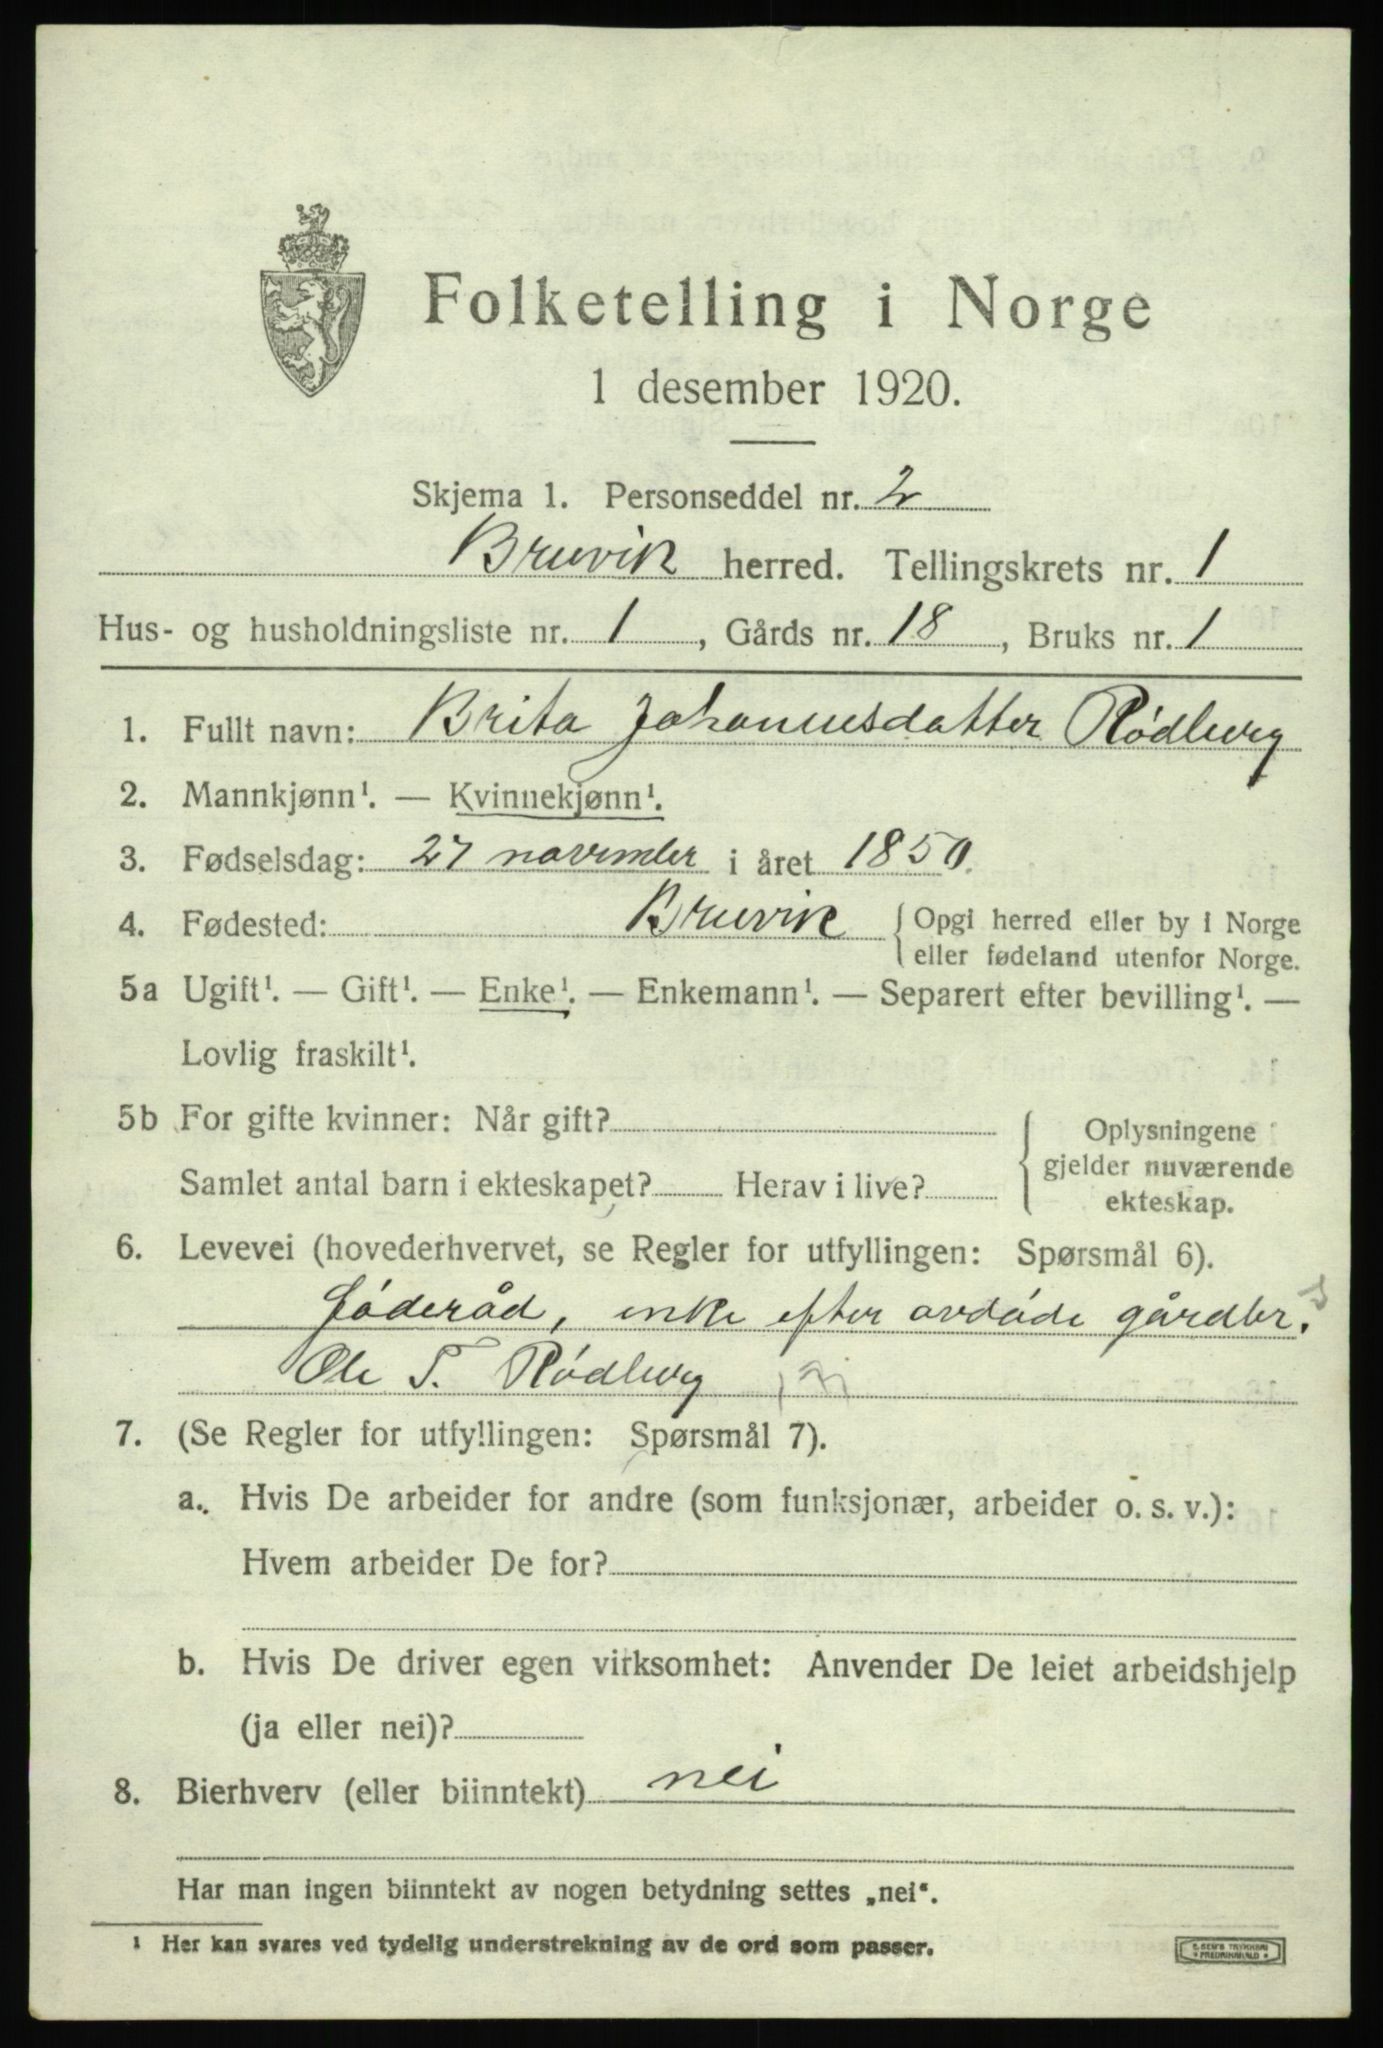 Folketelling i Norge
1 desember 1920.
Skjema 1. Personseddel nr. 2
Bruvik herred. Tellingskrets nr. 1
Hus- og husholdningsliste nr. 1, Gårds nr. 18, Bruks nr. 1
1. Fullt navn: Brita Johannesdatter Rødberg
2. Mannkjønn¹. — Kvinnekjønn¹.
3. Fødselsdag: 27 november i året 1850.
4. Fødested: Bruvik { Opgi herred eller by i Norge
eller fødeland utenfor Norge.
5a Ugift¹. — Gift¹. — Enke¹. — Enkemann¹. — Separert efter bevilling¹. —
Lovlig fraskilt¹.
5b For gifte kvinner: Når gift?
Samlet antal barn i ekteskapet? Herav i live?
Oplysningene
gjelder nuværende
ekteskap.
6. Levevei (hovederhvervet, se Regler for utfyllingen: Spørsmål 6).
føderåd, enke efter avdøde gårdbr.
Ole T. Rødberg
7. (Se Regler for utfyllingen: Spørsmål 7).
a. Hvis De arbeider for andre (som funksjonær, arbeider o. s. v.):
Hvem arbeider De for?
b. Hvis De driver egen virksomhet: Anvender De leiet arbeidshjelp
(ja eller nei)?
8. Bierhverv (eller biinntekt) nei
Har man ingen biinntekt av nogen betydning settes „nei“.
¹ Her kan svares ved tydelig understrekning av de ord som passer.